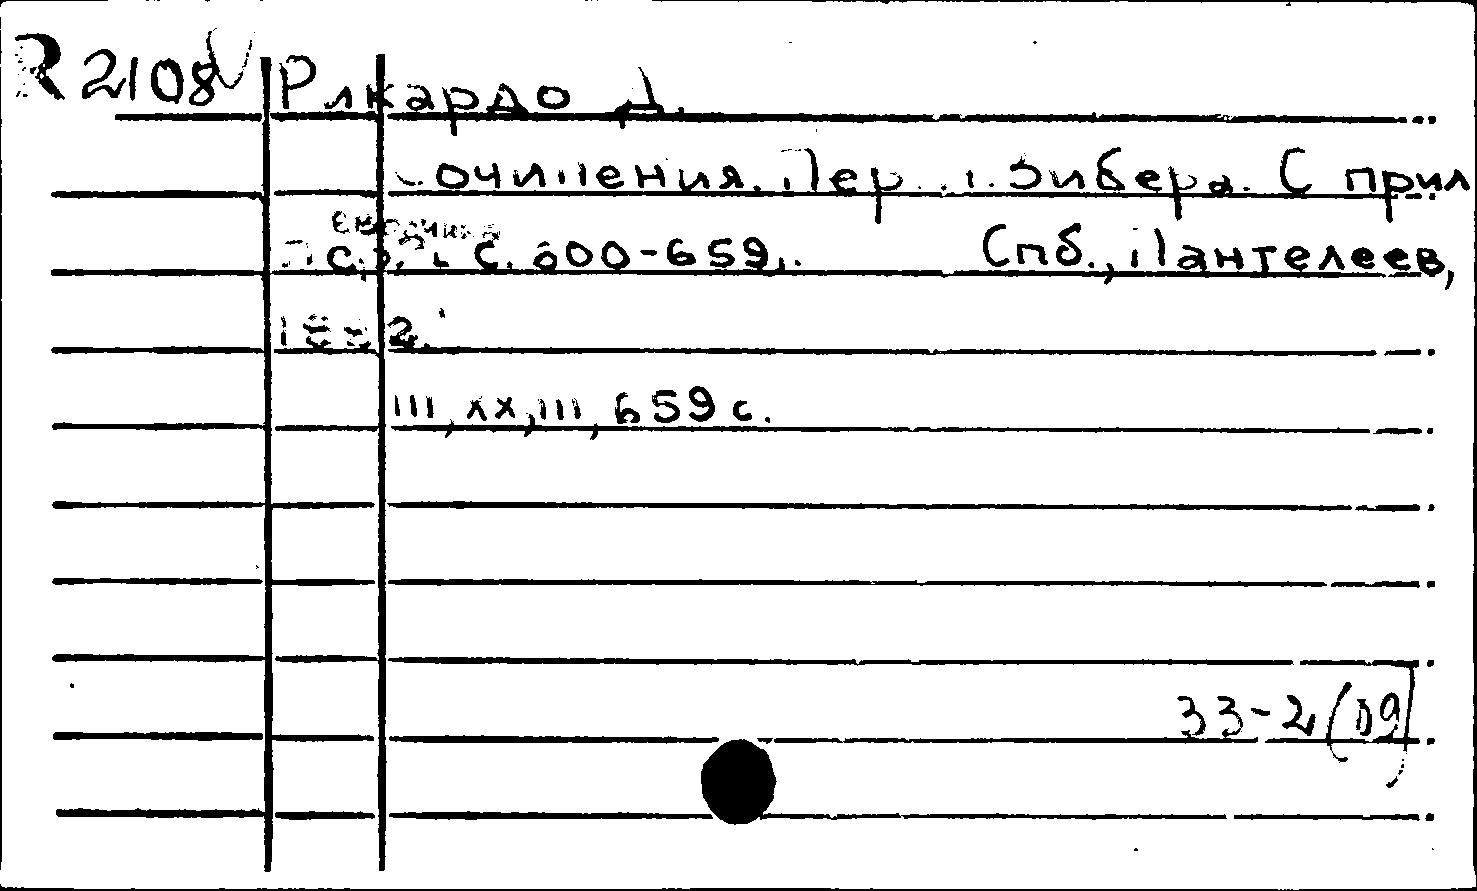 R 2108 Рикардо Д.
Сочинения. Пер. Н. Зибера. С прил
С. 600-659. Спб., Пантелеев,
1882.
III, XX, III, 659 с.
33-2(09)